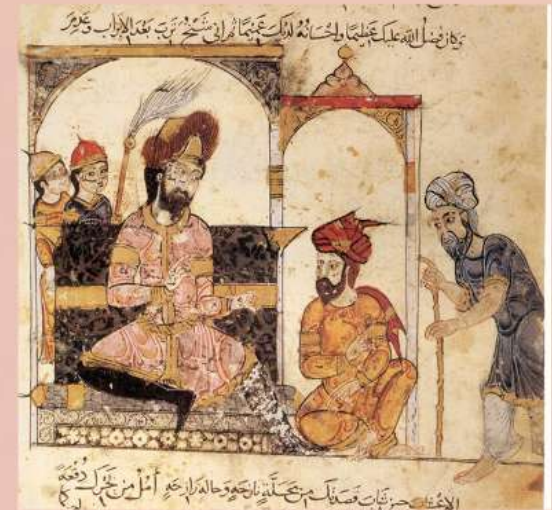 وكان فضل الله عليك عظيما واحسانه لديك عميما ثم اني شيخ ترب بعد الاتراب وعدم
الاعشاب حين شاب قصدتك من محلة نازحه وحاله رازحه أمل من بحرك دفعة